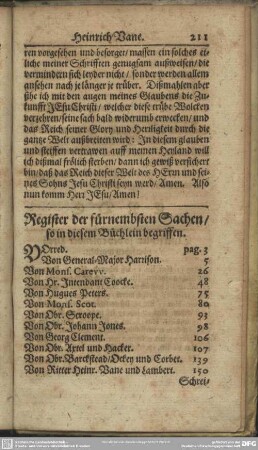 Heinrich Vane. 211
ren vorgesehen und besorget/ massen ein solches et-
liche meiner Schrifften genugsam außweisen/ die
vermindern sich leyder nicht / sonder werden allem
ansehen nach je länger je trüber. Dißmahlen aber
sihe ich mit den augen meines Glaubens die Zu-
kunfft JEsu Christi/ welcher diese trübe Wolcken
verzehren/ seine sach bald widerumb erwecken/ und
das Reich seiner Glory und Herrligkeit durch die
gantze Welt außbreiten wird: In diesem glauben
und steiffen vertrawen auff meinen Heyland will
ich dißmal frölich sterben/ dann ich gewiß versichert
bin/ daß das Reich dieser Welt des HErn und sei-
nes Sohns Jesu Christi seyn werd/ Amen. Also
nun komm Herr JEsu/ Amen!
Register der fürnembsten Sachen/
so in diesem Büchlein begriffen.
VOrred. pag. 3
Von General-Major Harrison. 5
Von Mons. Carevv. 26
Von Hr. Intendant Coocke. 48
Von Hugues Peters. 75
Von Mons. Scot. 80
Von Obr. Scroope. 93
Von Obr. Johann Jones. 98
Von Georg Clement. 106
Von Obr. Axtel und Hacker. 107
Von Obr. Barckstead/ Ockey und Corbet. 139
Von Ritter Heinr. Vane und Lambert. 150
Schrei-